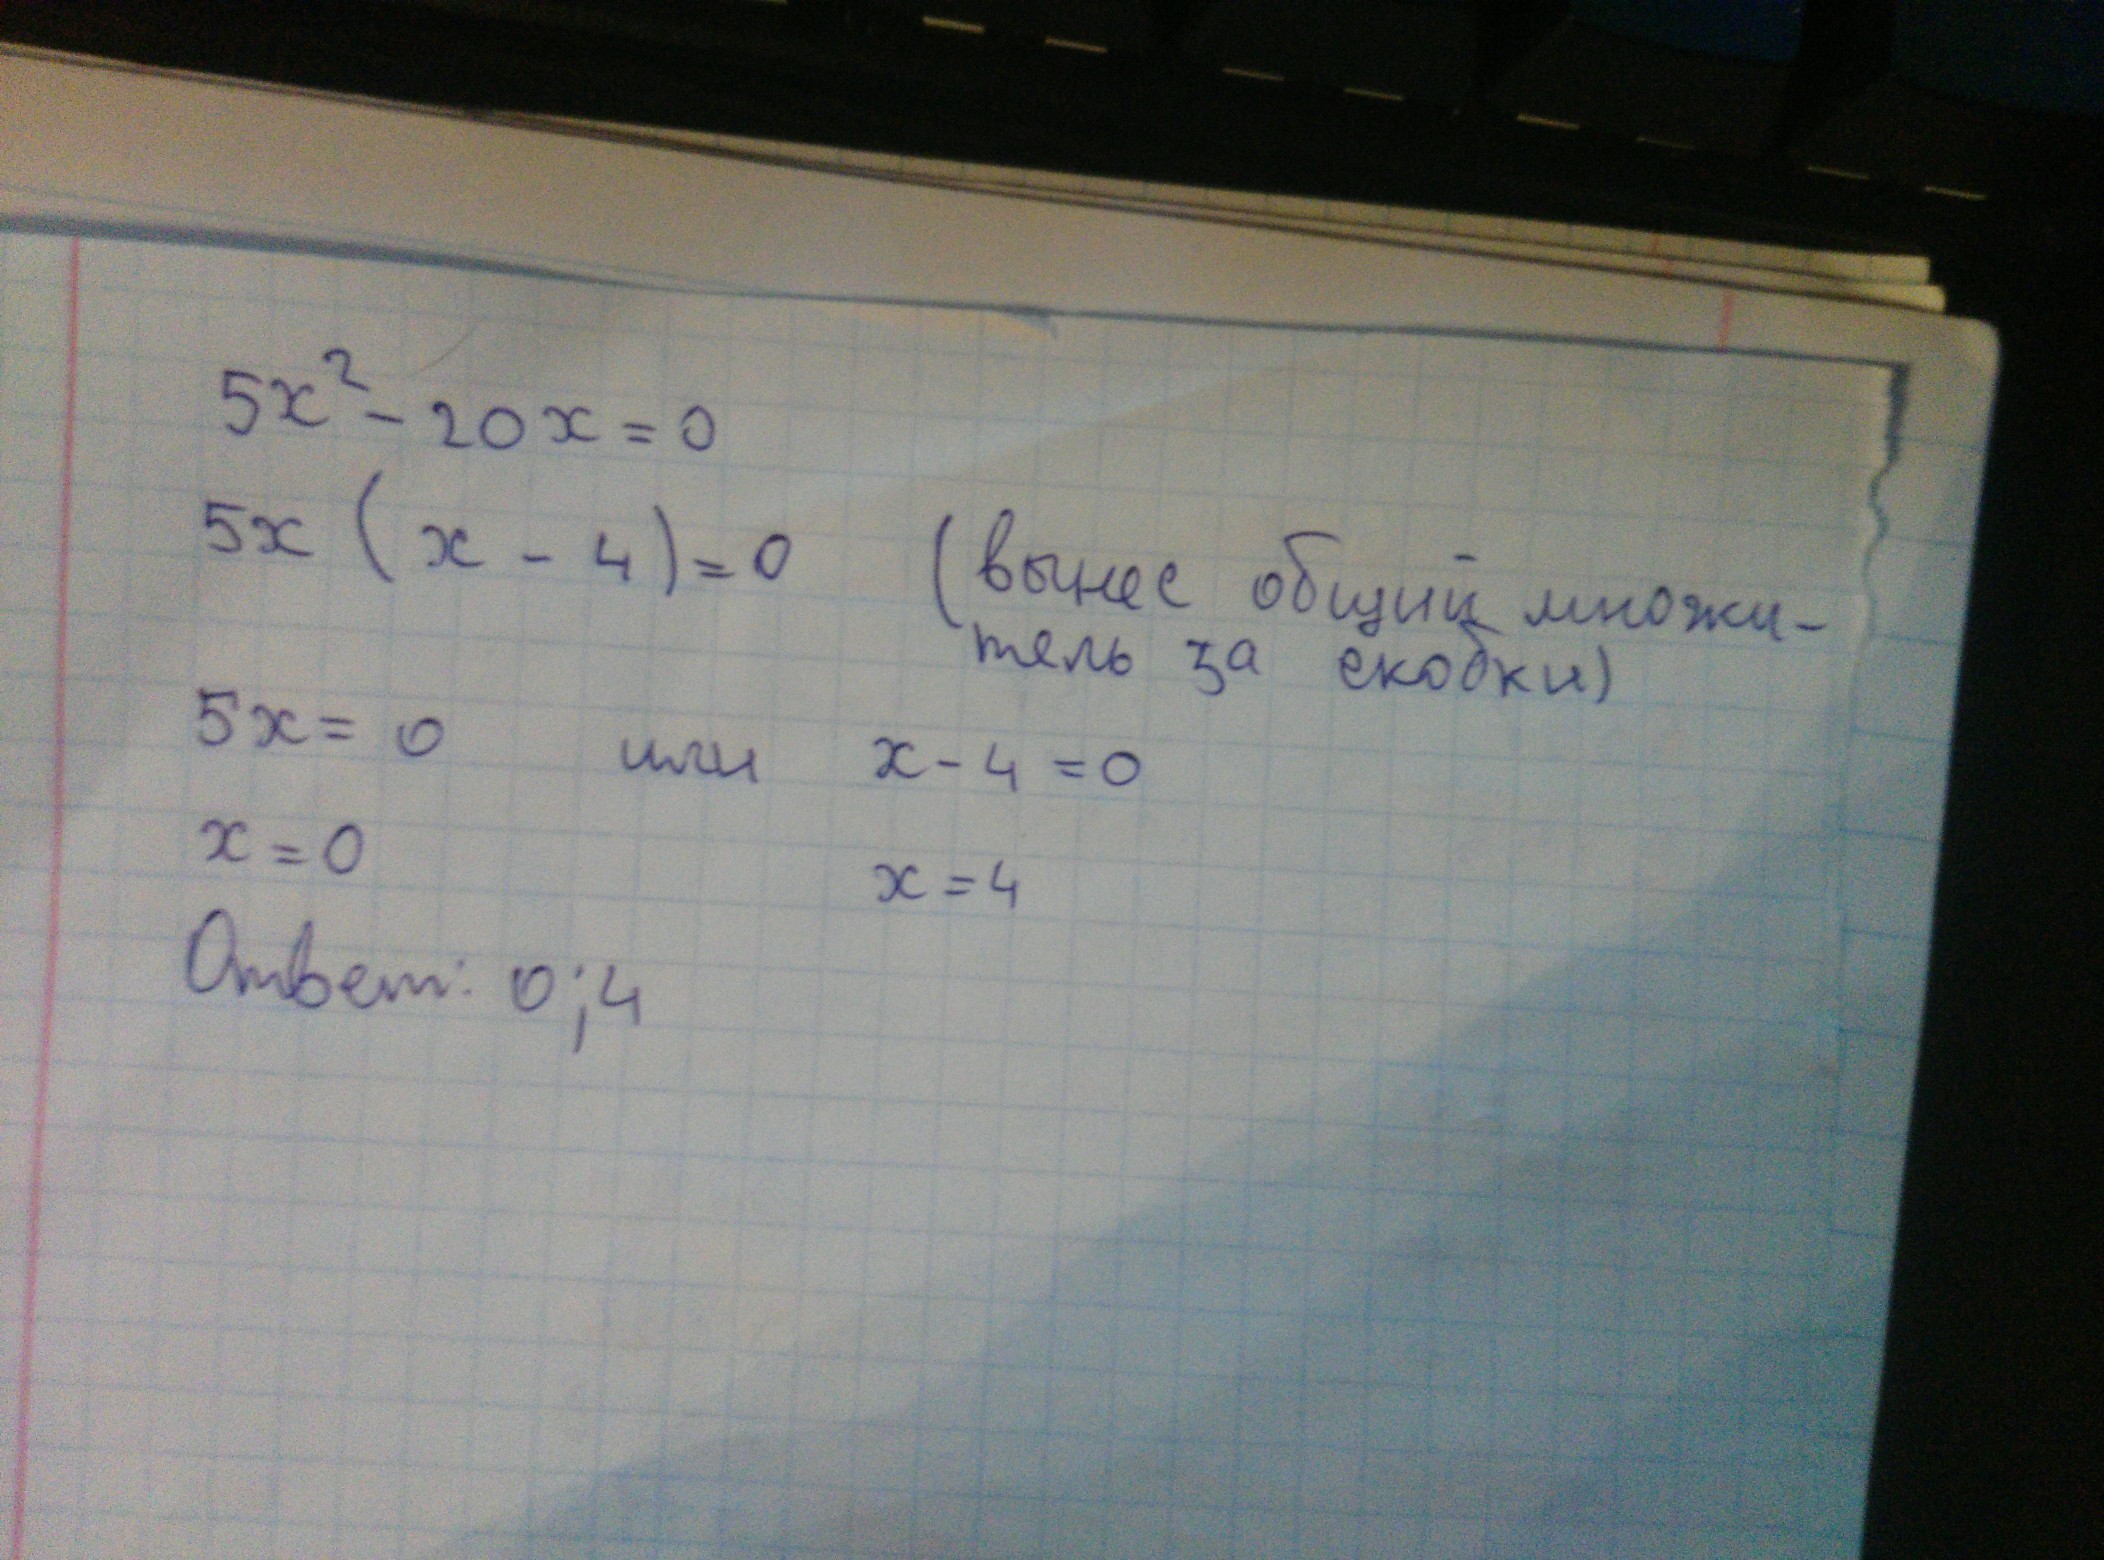 5x² - 20x = 0
5x (x - 4) = 0 (вынес общий множи-
тель за скобки)
5x = 0 или x - 4 = 0
x = 0 x = 4
Ответ: 0; 4